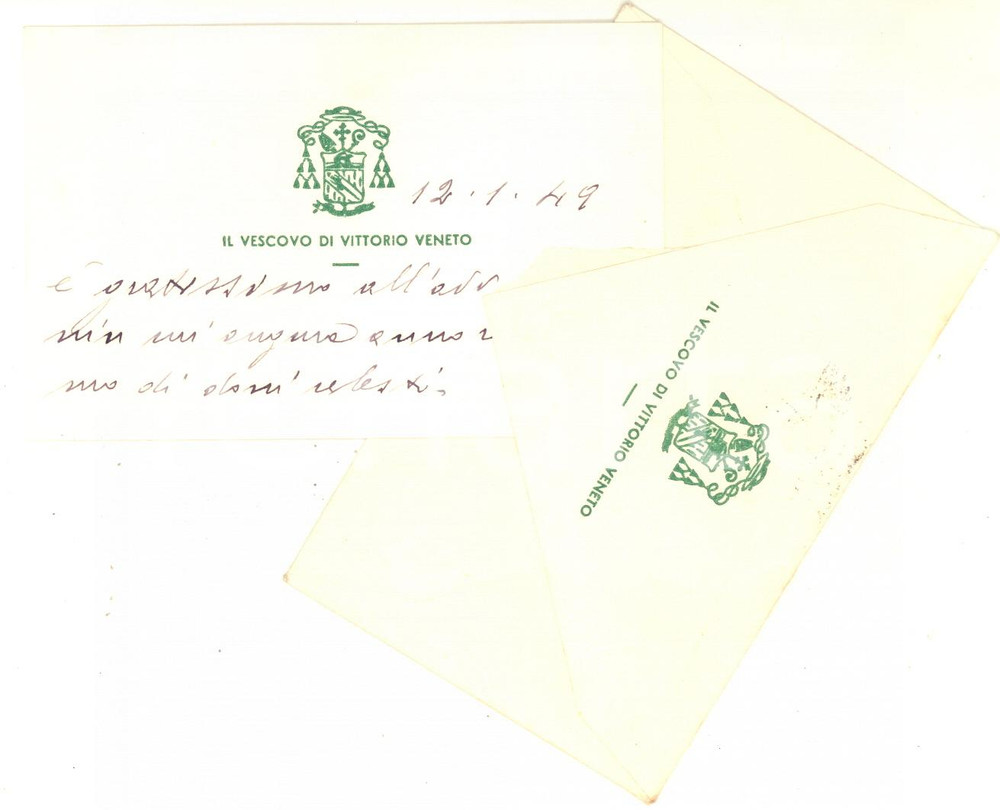 12.1.49
IL VESCOVO DI VITTORIO VENETO
è gratissimo all'
augura anno
mo di doni celesti.
IL VESCOVO DI VITTORIO VENETO